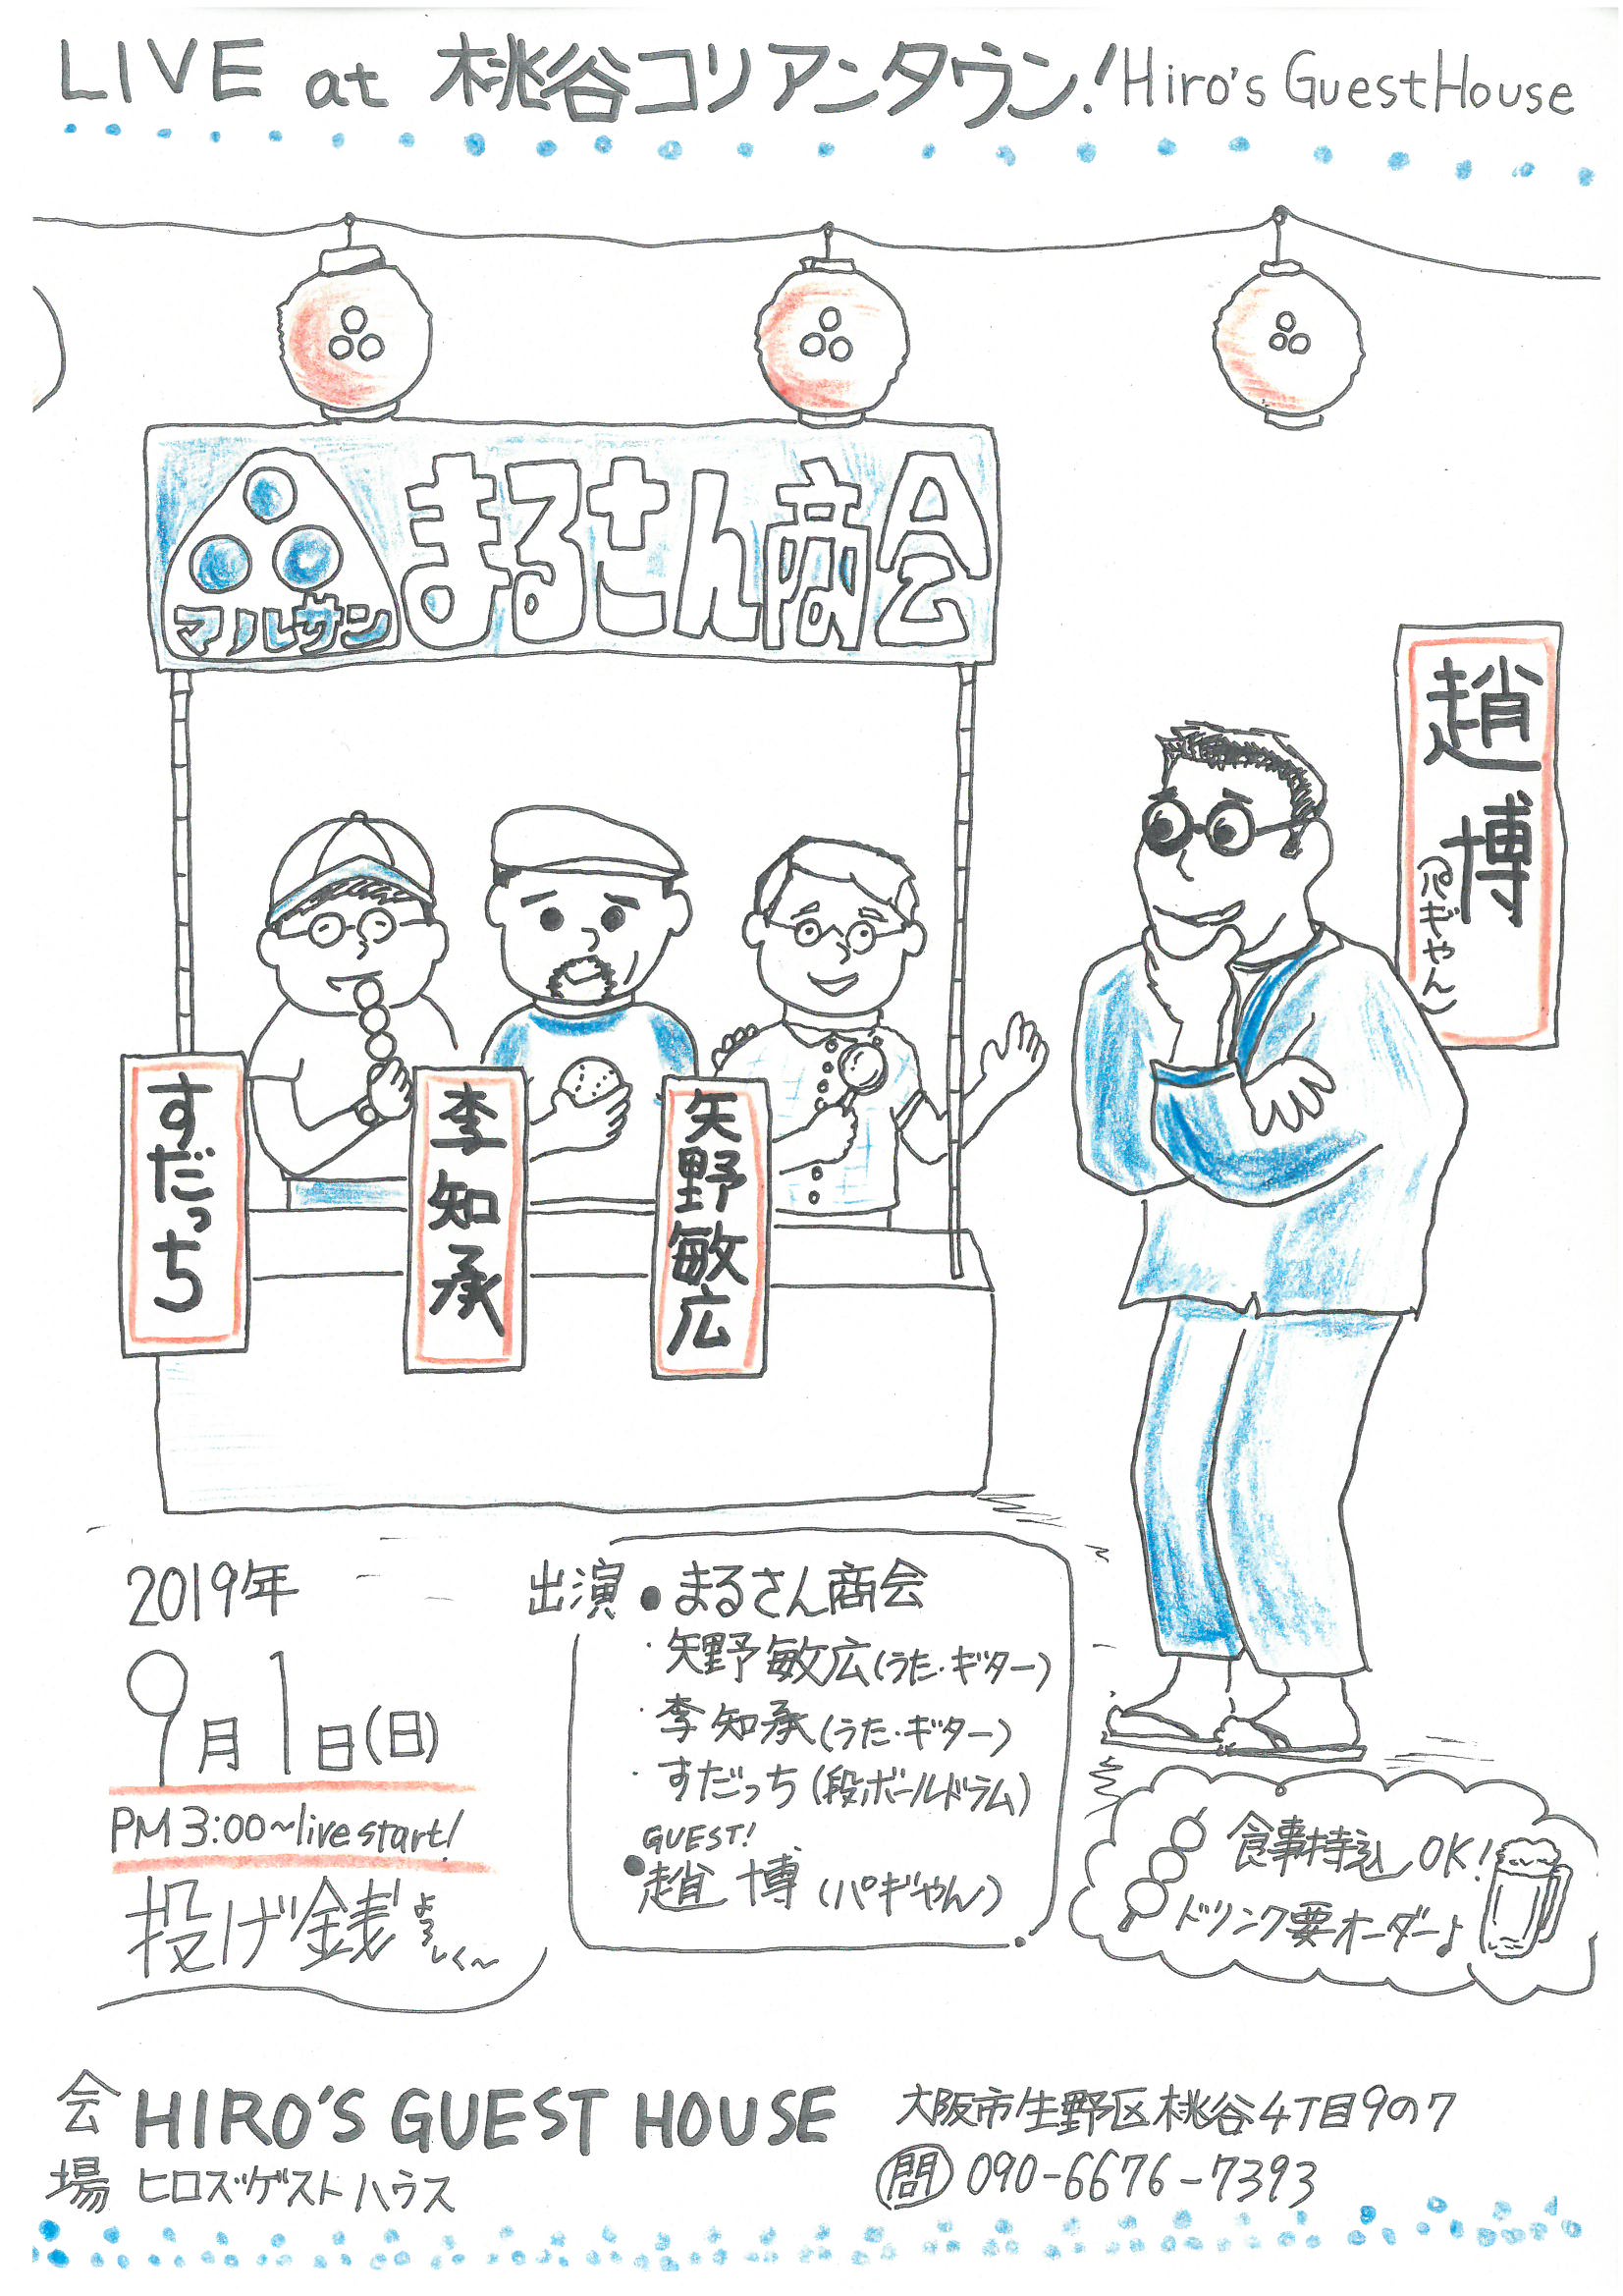 LIVE at 桃谷コリアンタウン! Hiro's Guest House
まるさん商会
マルサン
趙博
(パギやん)
すだっち
李知承
矢野敏広
2019年
9月1日(日)
PM 3:00~live start!
投げ銭よろしく~
出演●まるさん商会
・矢野敏広(うた・ギター)
・李知承(うた・ギター)
・すだっち(段ボールドラム)
GUEST!
●趙博(パギやん)
食事持込OK!
ドリンク要オーダー♪
会場
HIRO'S GUEST HOUSE
ヒロズゲストハウス
大阪市生野区桃谷4丁目9の7
問 090-6676-7393